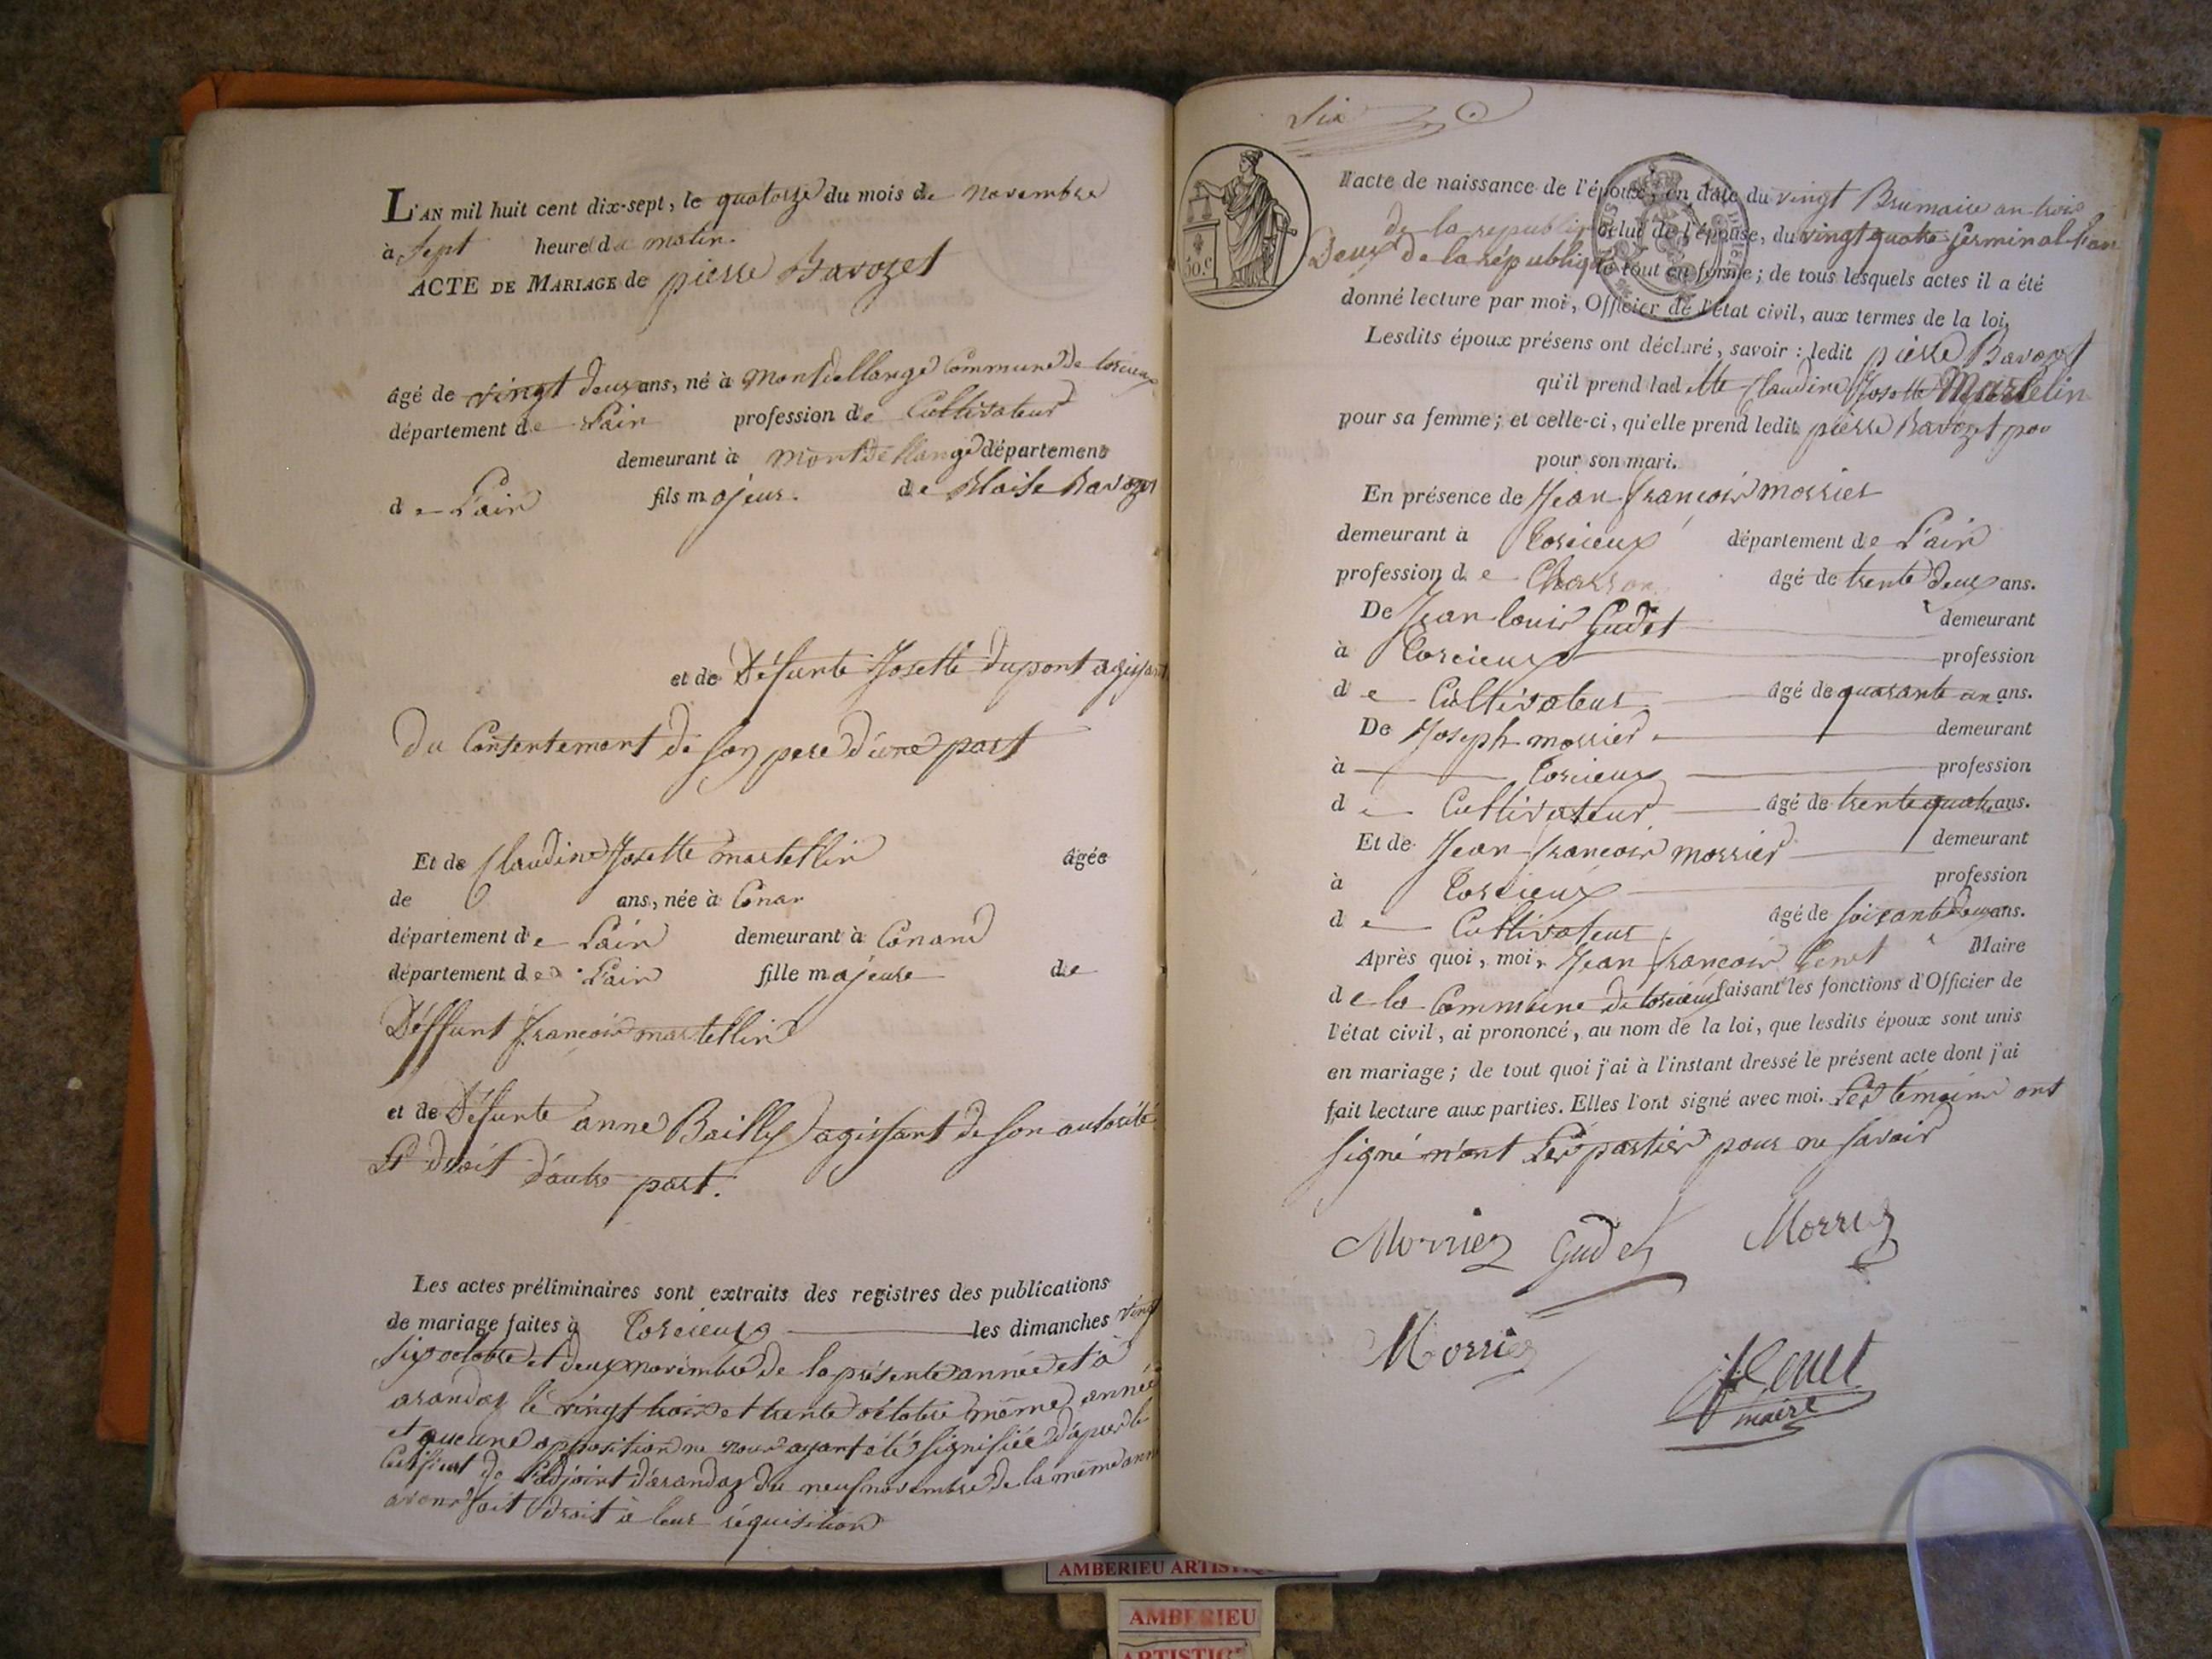 L'AN mil huit cent dix-sept, le quatorze du mois de novembre
à Sept heure du matin.
ACTE DE MARIAGE de pierre Bavozet
âgé de vingt deux ans, né à Montdellange Commune de torcieux
département de L'ain profession de Cultivateur
demeurant à Montdellange département
de L'ain fils majeur. de Blaise Bavozet
et de Défunte Josette dupont agissant
du Consentement de son pere d'une part
Et de Claudine Josette martellin âgée
de ans, née à Conan
département de L'ain demeurant à Conand
département de L'ain fille majeure de
Déffunt françois martellin
et de Défunte anne Bailly agissant de son autorité
Et droit d'autre part.
Les actes préliminaires sont extraits des registres des publications
de mariage faites à Torcieux les dimanches vingt
six octobre et deux novembre de la présente année et à
arandaz le vingt trois et trente octobre même année
et aucune opposition ne nous ayant été signifiée d'apres le
Certificat de L'adjoint d'arandaz du neuf novembre de la même année
avons fait droit à leur réquisition
Six
L'acte de naissance de l'époux, en date du vingt Brumaire an trois
de la republique celui de l'épouse, du vingt quatre germinal l'an
Deux de la république le tout en forme; de tous lesquels actes il a été
donné lecture par moi, Officier de l'état civil, aux termes de la loi.
Lesdits époux présens ont déclaré, savoir: ledit pierre Bavozet
qu'il prend ladette Claudine Josette Martelin
pour sa femme; et celle-ci, qu'elle prend ledit pierre Bavozet pou
pour son mari.
En présence de Jean françois morrier
demeurant à Torcieux département de L'ain
profession de Charron âgé de trente deux ans.
De Jean louis Gudet demeurant
à Torcieux profession
de Cultivateur âgé de quarante un ans.
De Joseph morrier demeurant
à Torcieux profession
de Cultivateur âgé de trente quatre ans.
Et de Jean françois morrier demeurant
à Torcieux profession
de Cultivateur âgé de soixante deux ans.
Après quoi, moi, Jean françois Genet Maire
de la Commune de torcieux faisant les fonctions d'Officier de
l'état civil, ai prononcé, au nom de la loi, que lesdits époux sont unis
en mariage; de tout quoi j'ai à l'instant dressé le présent acte dont j'ai
fait lecture aux parties. Elles l'ont signé avec moi. Les témoins ont
signé n'ont Les parties pour ne savoir
Morrier Gudet Morrier
Morrier
maire
50.c
AMBERIEU
AMBERIEU